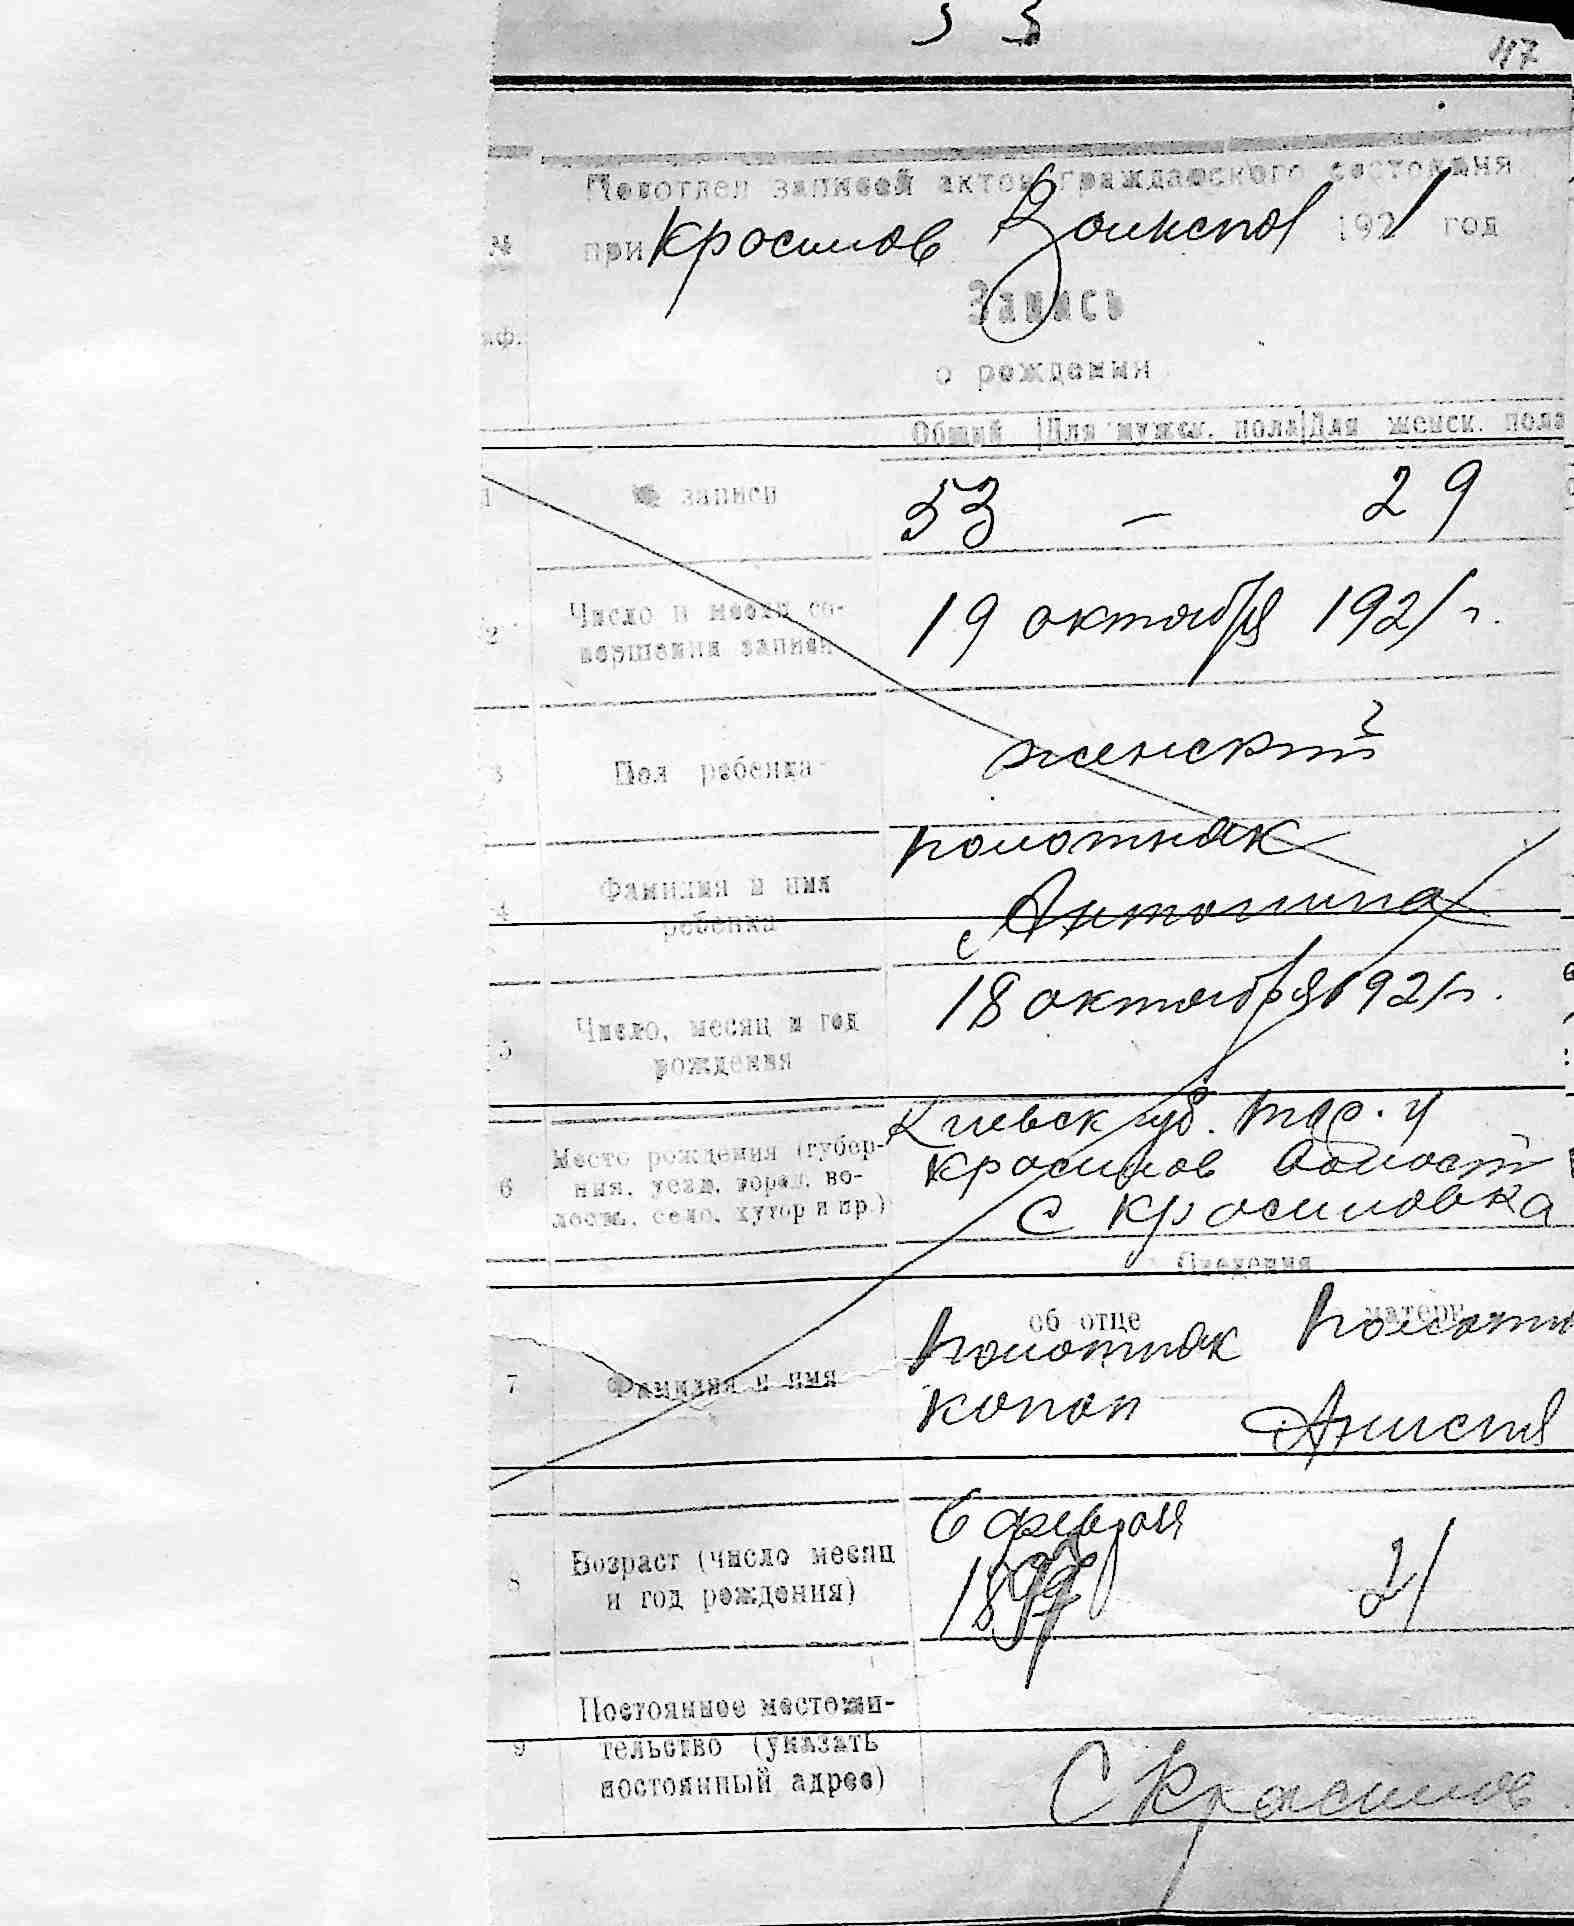 53
117
Подотдел записей актов гражданского состояния
№ при Красилов 1921 год
Запись
иф.
о рождении
Общий Для мужск. пола Для женск. пола
1 № записи 53 – 29
2 Число и место со-
вершения записи 19 октября 1921 г.
3 Пол ребенка женский
Полотняк
4 Фамилия и имя
ребенка Антонина
18 октября 1921 г.
5 Число, месяц и год
рождения
Киевск губ. Тар. у
6 Место рождения (губер-
ния, уезд, город, во-
лость, село, хутор и пр.)
Красилов Волост
с Красиловка
Сведения
об отце матери
7 Фамилия и имя Полотняк Полотн
Анистя
8 Возраст (число месяц
и год рождения)
6 феврля
21
Постоянное местожи-
9 тельство (указать
постоянный адрес)
С Красилов